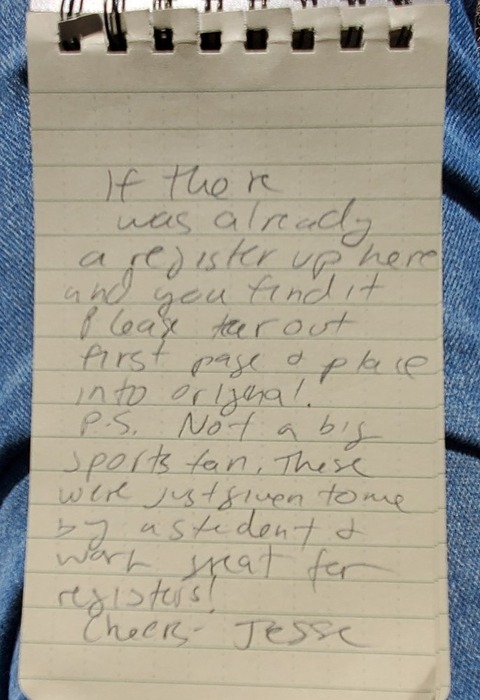 If there
was already
a register up here
and you find it
Please tear out
first page & place
into original.
P.S. Not a big
sports fan. These
were just given to me
by a student &
work great for
registers!
Cheers - Jesse